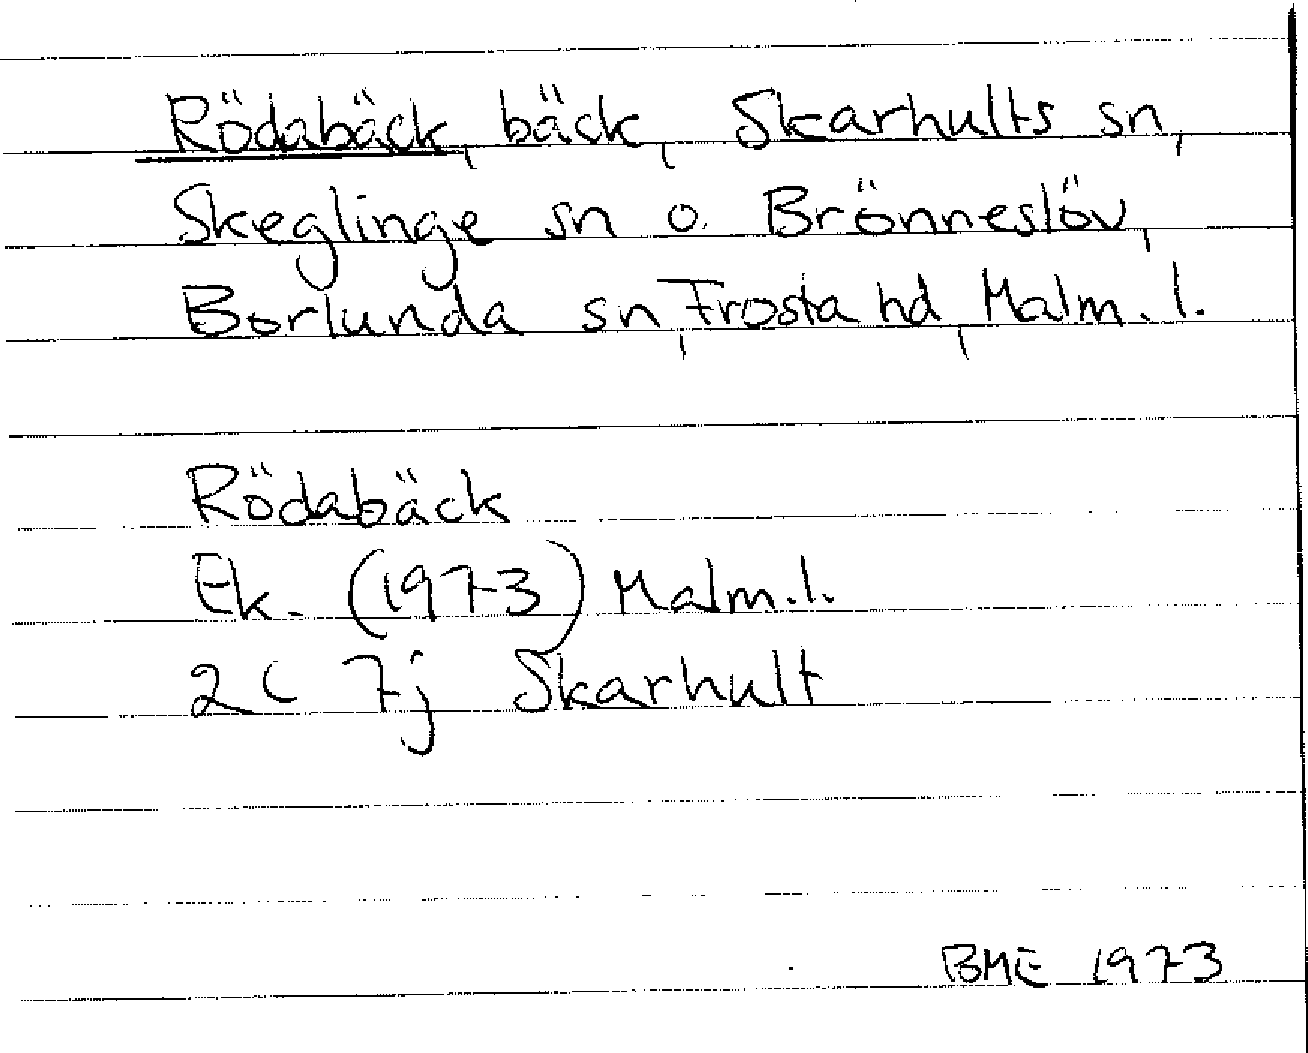 Rödabäck, bäck, Skarhults sn,
Skeglinge sn o. Brönneslöv,
Borlunda sn, Frosta hd, Malm. l.
Rödabäck
Ek. (1973) Malm. l.
2C 7j Skarhult
BME 1973